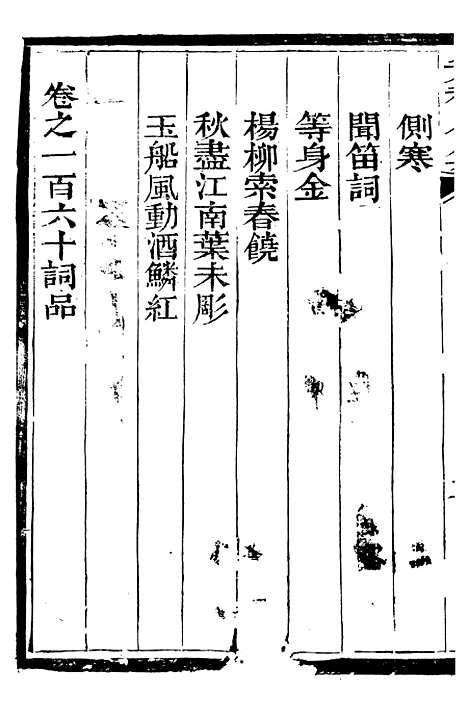 側寒
聞笛詞
等身金
楊柳索春饒
秋盡江南葉未彫
玉船風動酒鱗紅
卷之一百六十詞品